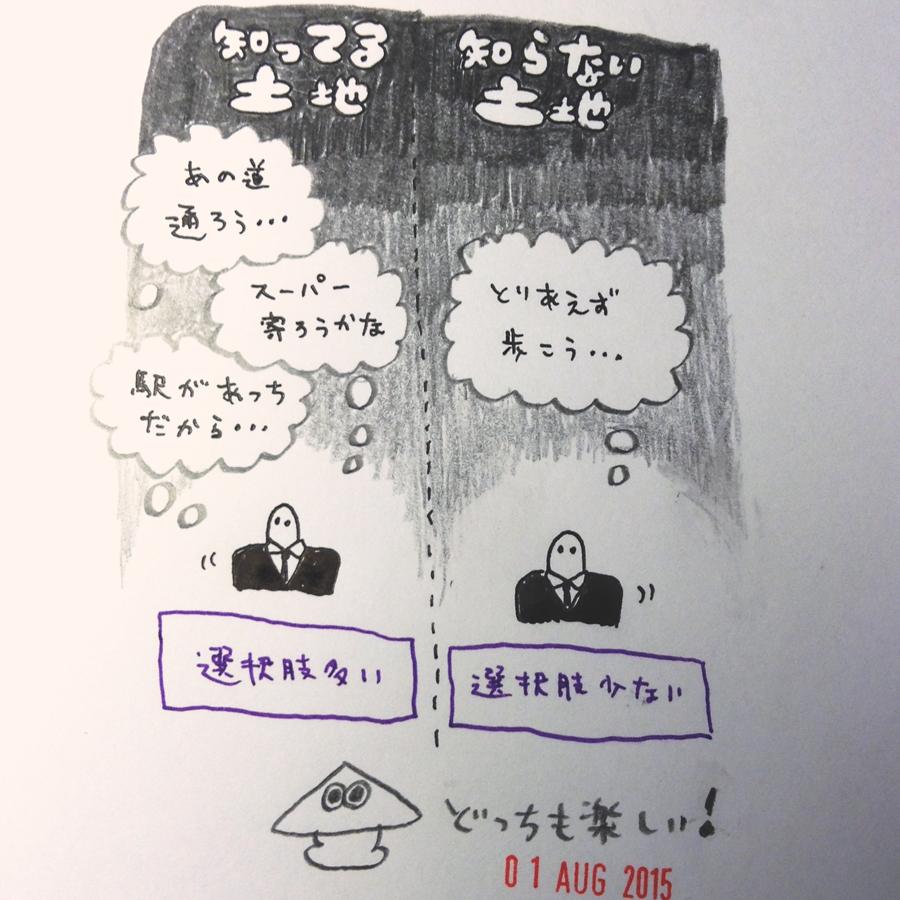 知ってる
土地
あの道
通ろう…
スーパー
寄ろうかな
駅があっち
だから…
選択肢多い
知らない
土地
とりあえず
歩こう…
選択肢少ない
どっちも楽しい!
01 AUG 2015